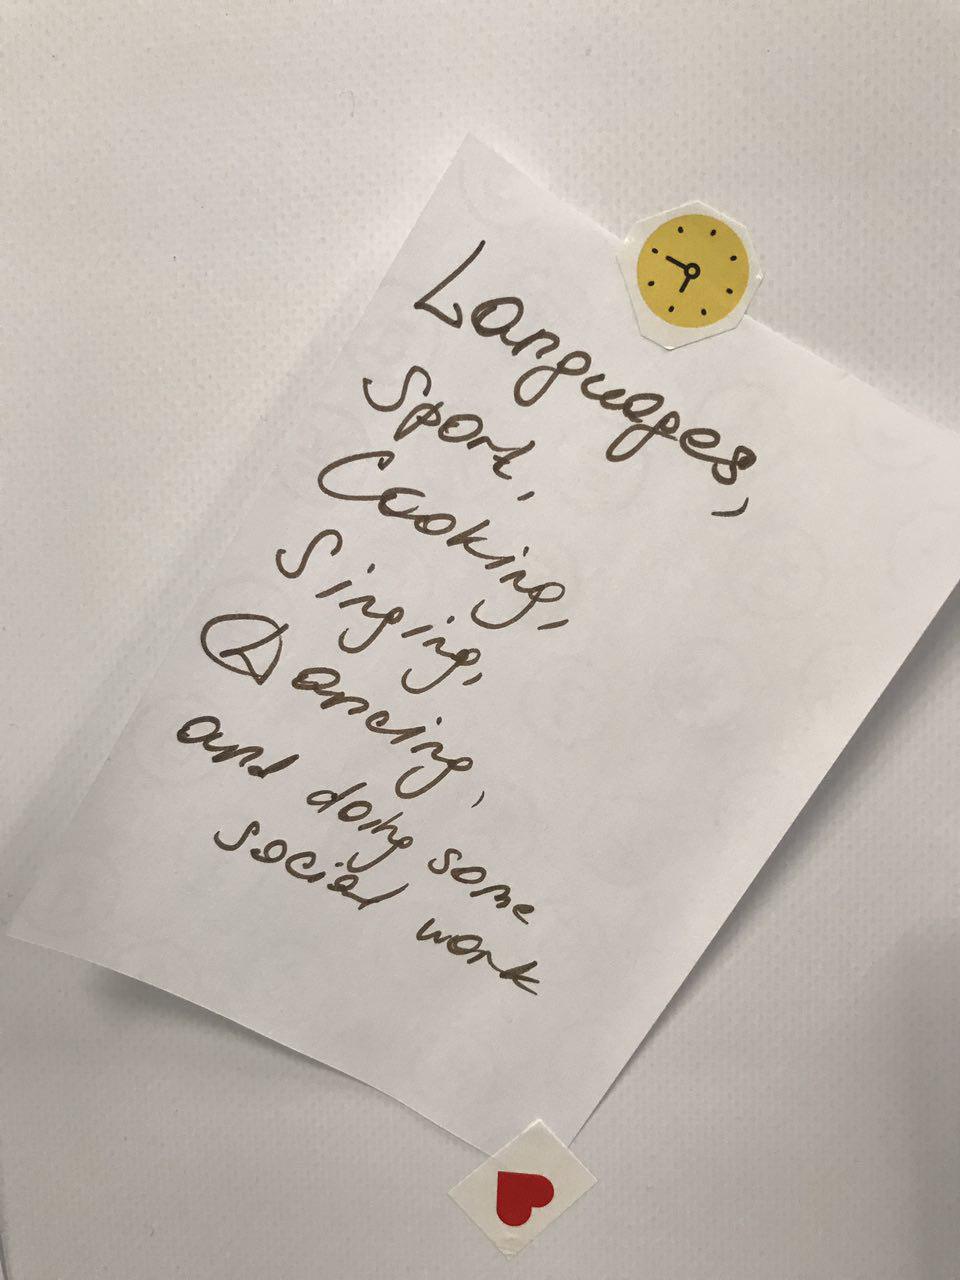 Languages,
Sport,
Cooking,
Singing,
Dancing,
and doing some
social work